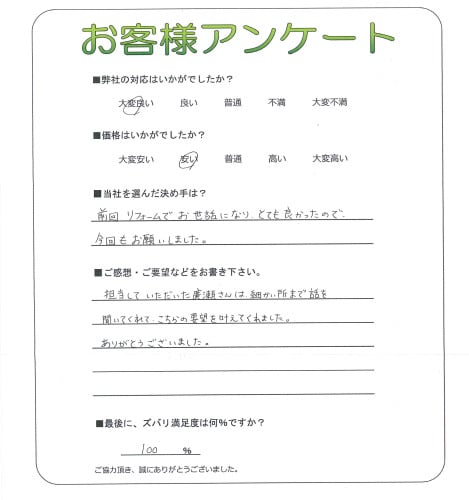 お客様アンケート
■弊社の対応はいかがでしたか？
大変良い 良い 普通 不満 大変不満
■価格はいかがでしたか？
大変安い 安い 普通 高い 大変高い
■当社を選んだ決め手は？
前回リフォームでお世話になり、とても良かったので、
今回もお願いしました。
■ご感想・ご要望などをお書き下さい。
担当していただいた廣瀬さんは、細かい所まで話を
聞いてくれて、こちらの要望を叶えてくれました。
ありがとうございました。
■最後に、ズバリ満足度は何％ですか？
100 ％
ご協力頂き、誠にありがとうございました。